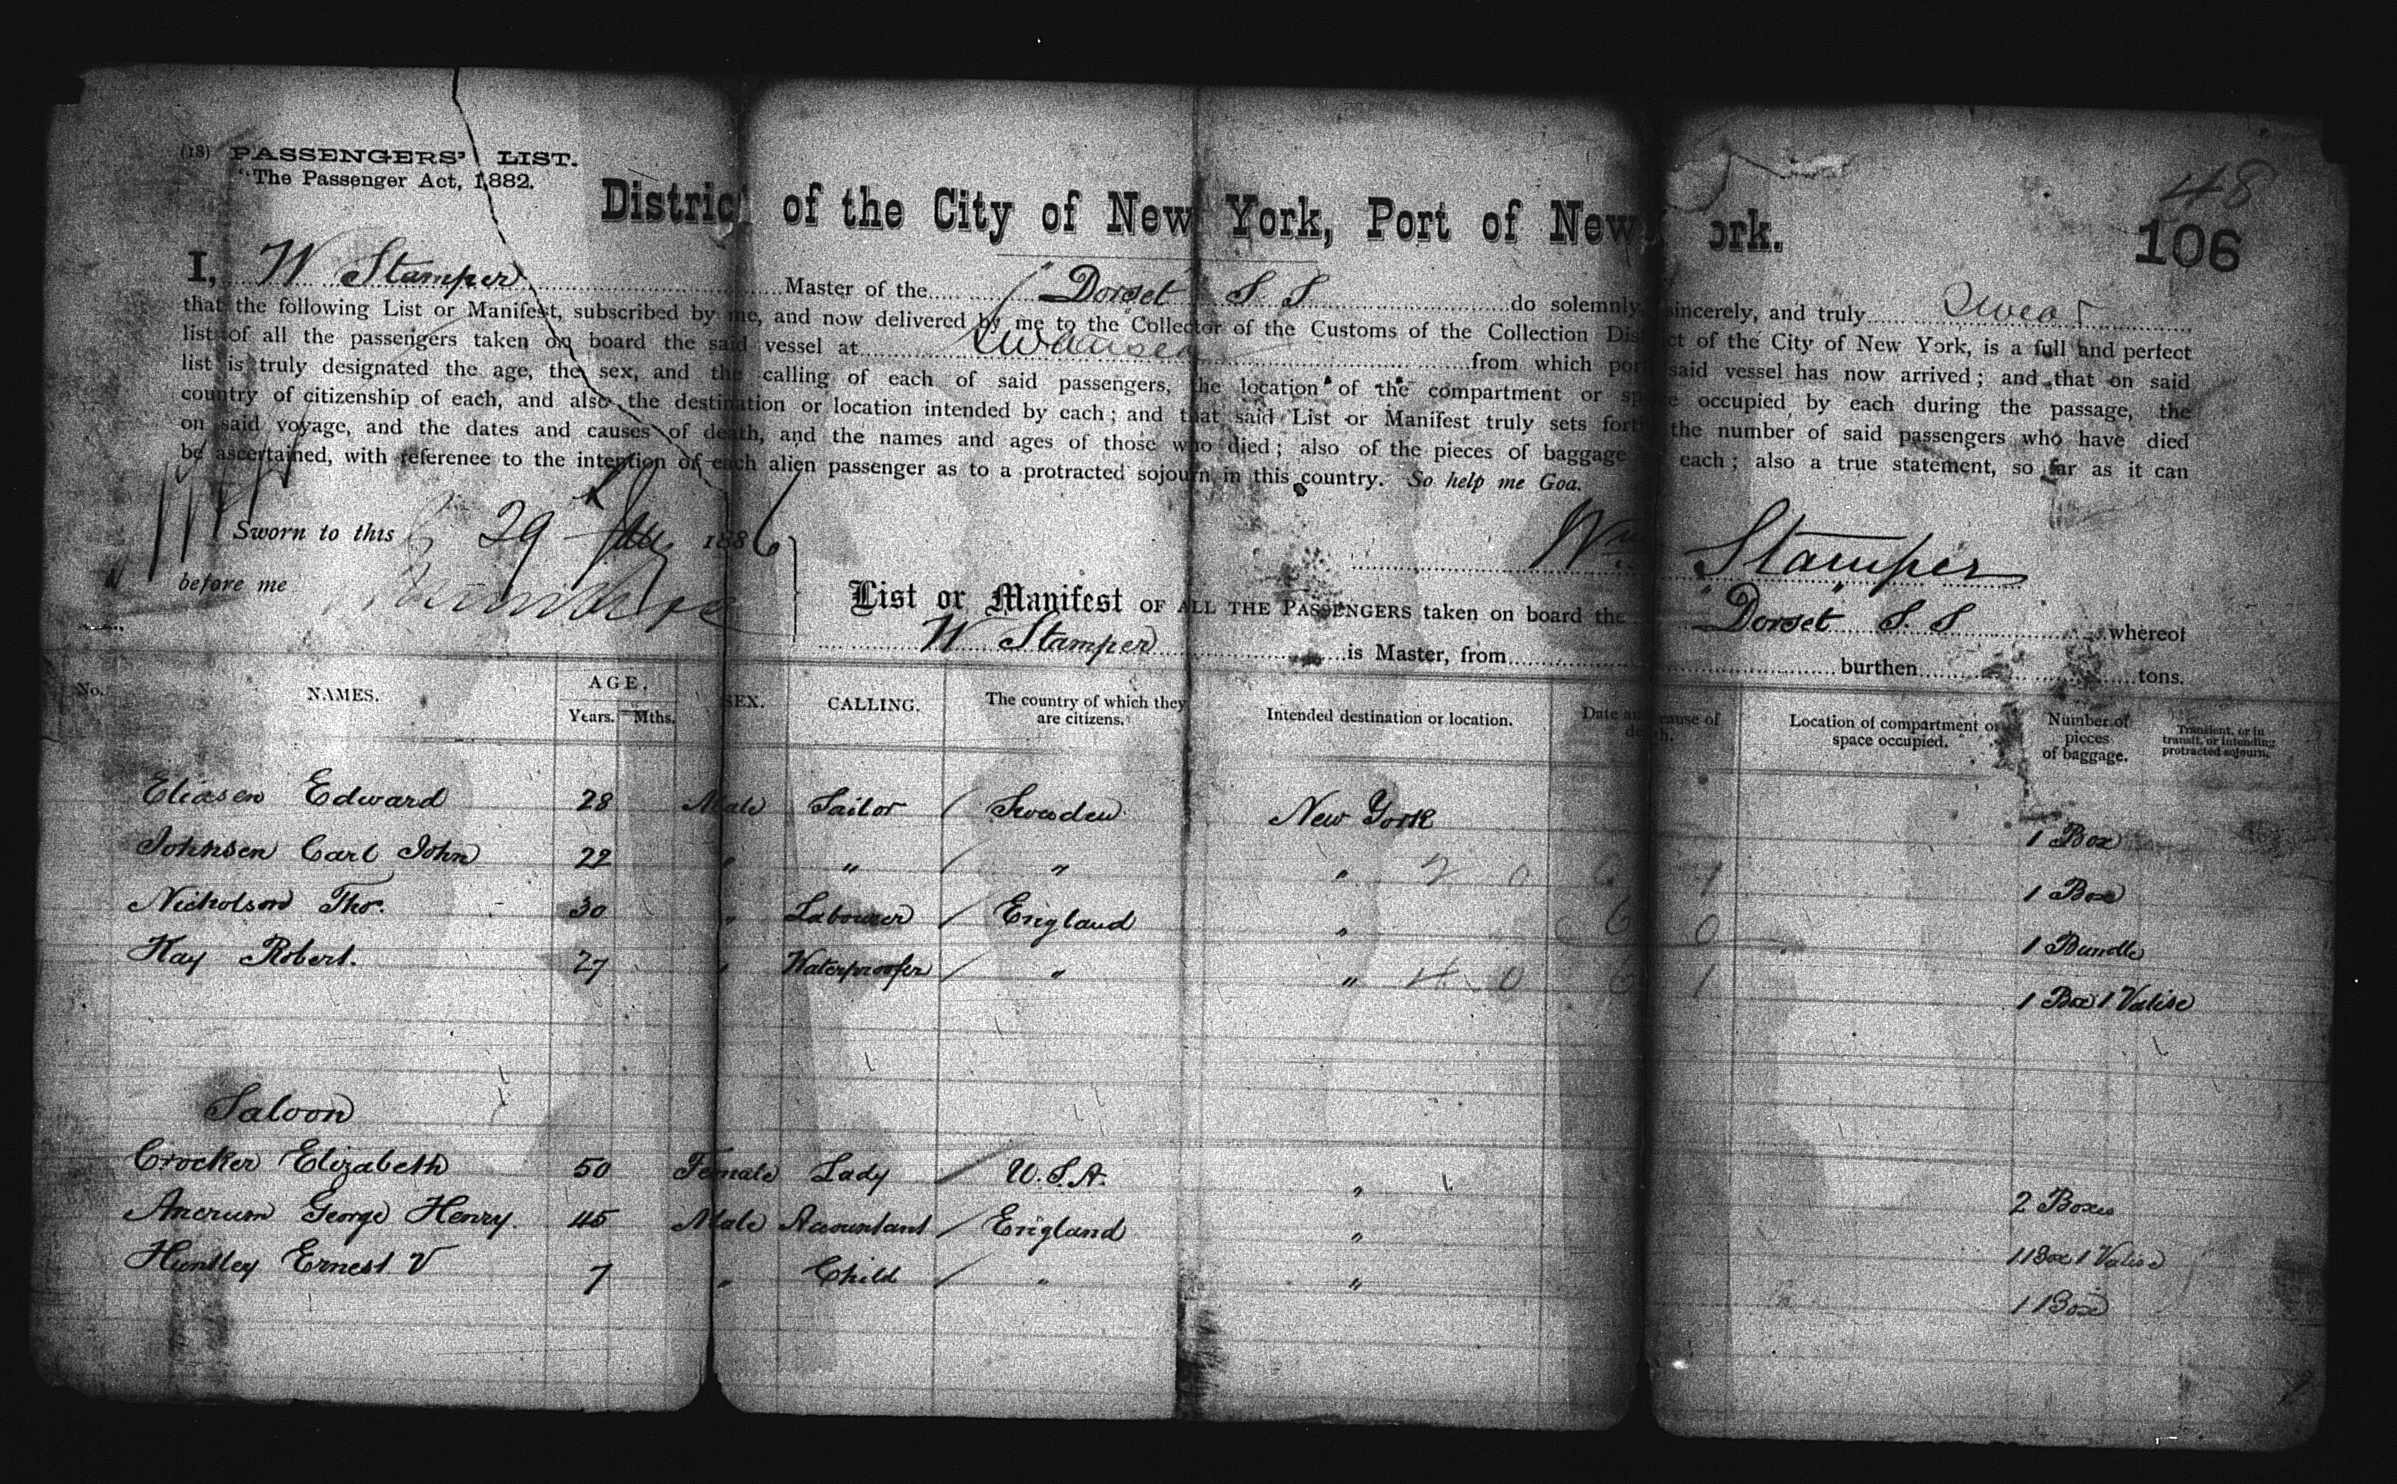 (18) PASSENGERS' LIST.
"The Passenger Act, 1882.
48
District of the City of New York, Port of New York.
106
I, W Stamper Master of the "Dorset" S. S. do solemnly, sincerely, and truly Swear
that the following List or Manifest, subscribed by me, and now delivered by me to the Collector of the Customs of the Collection District of the City of New York, is a full and perfect
list of all the passengers taken on board the said vessel at Swansea from which port said vessel has now arrived; and that on said
list is truly designated the age, the sex, and the calling of each of said passengers, the location of the compartment or space occupied by each during the passage, the
country of citizenship of each, and also the destination or location intended by each; and that said List or Manifest truly sets forth the number of said passengers who have died
on said voyage, and the dates and causes of death, and the names and ages of those who died; also of the pieces of baggage of each; also a true statement, so far as it can
be ascertained, with reference to the intention of each alien passenger as to a protracted sojourn in this country. So help me God.
Sworn to this 29 1886
Wm Stamper
before me
List or Manifest OF ALL THE PASSENGERS taken on board the "Dorset" S. S whereof
W Stamper is Master, from burthen tons.
No. NAMES. AGE. Years. Mths. SEX. CALLING. The country of which they are citizens. Intended destination or location. Date and cause of death. Location of compartment or space occupied. Number of pieces of baggage. Transient, or in transit, or intending protracted sojourn.
Eliasen Edward 28 Male Sailor / Sweden New York 1 Box
Johnsen Carl John 22 " " / " " 1 Box
Nicholson Thos. 30 " Labourer / England " 1 Bundle
Kay Robert. 27 " Waterproofer / " " 1 Box 1 Valise
Saloon
Crocker Elizabeth 50 Female Lady / U.S.A. " 2 Boxes
Ancrum George Henry. 45 Male Acountant / England " 1 Box 1 Valise
Huntley Ernest V 7 " Child / " " 1 Box